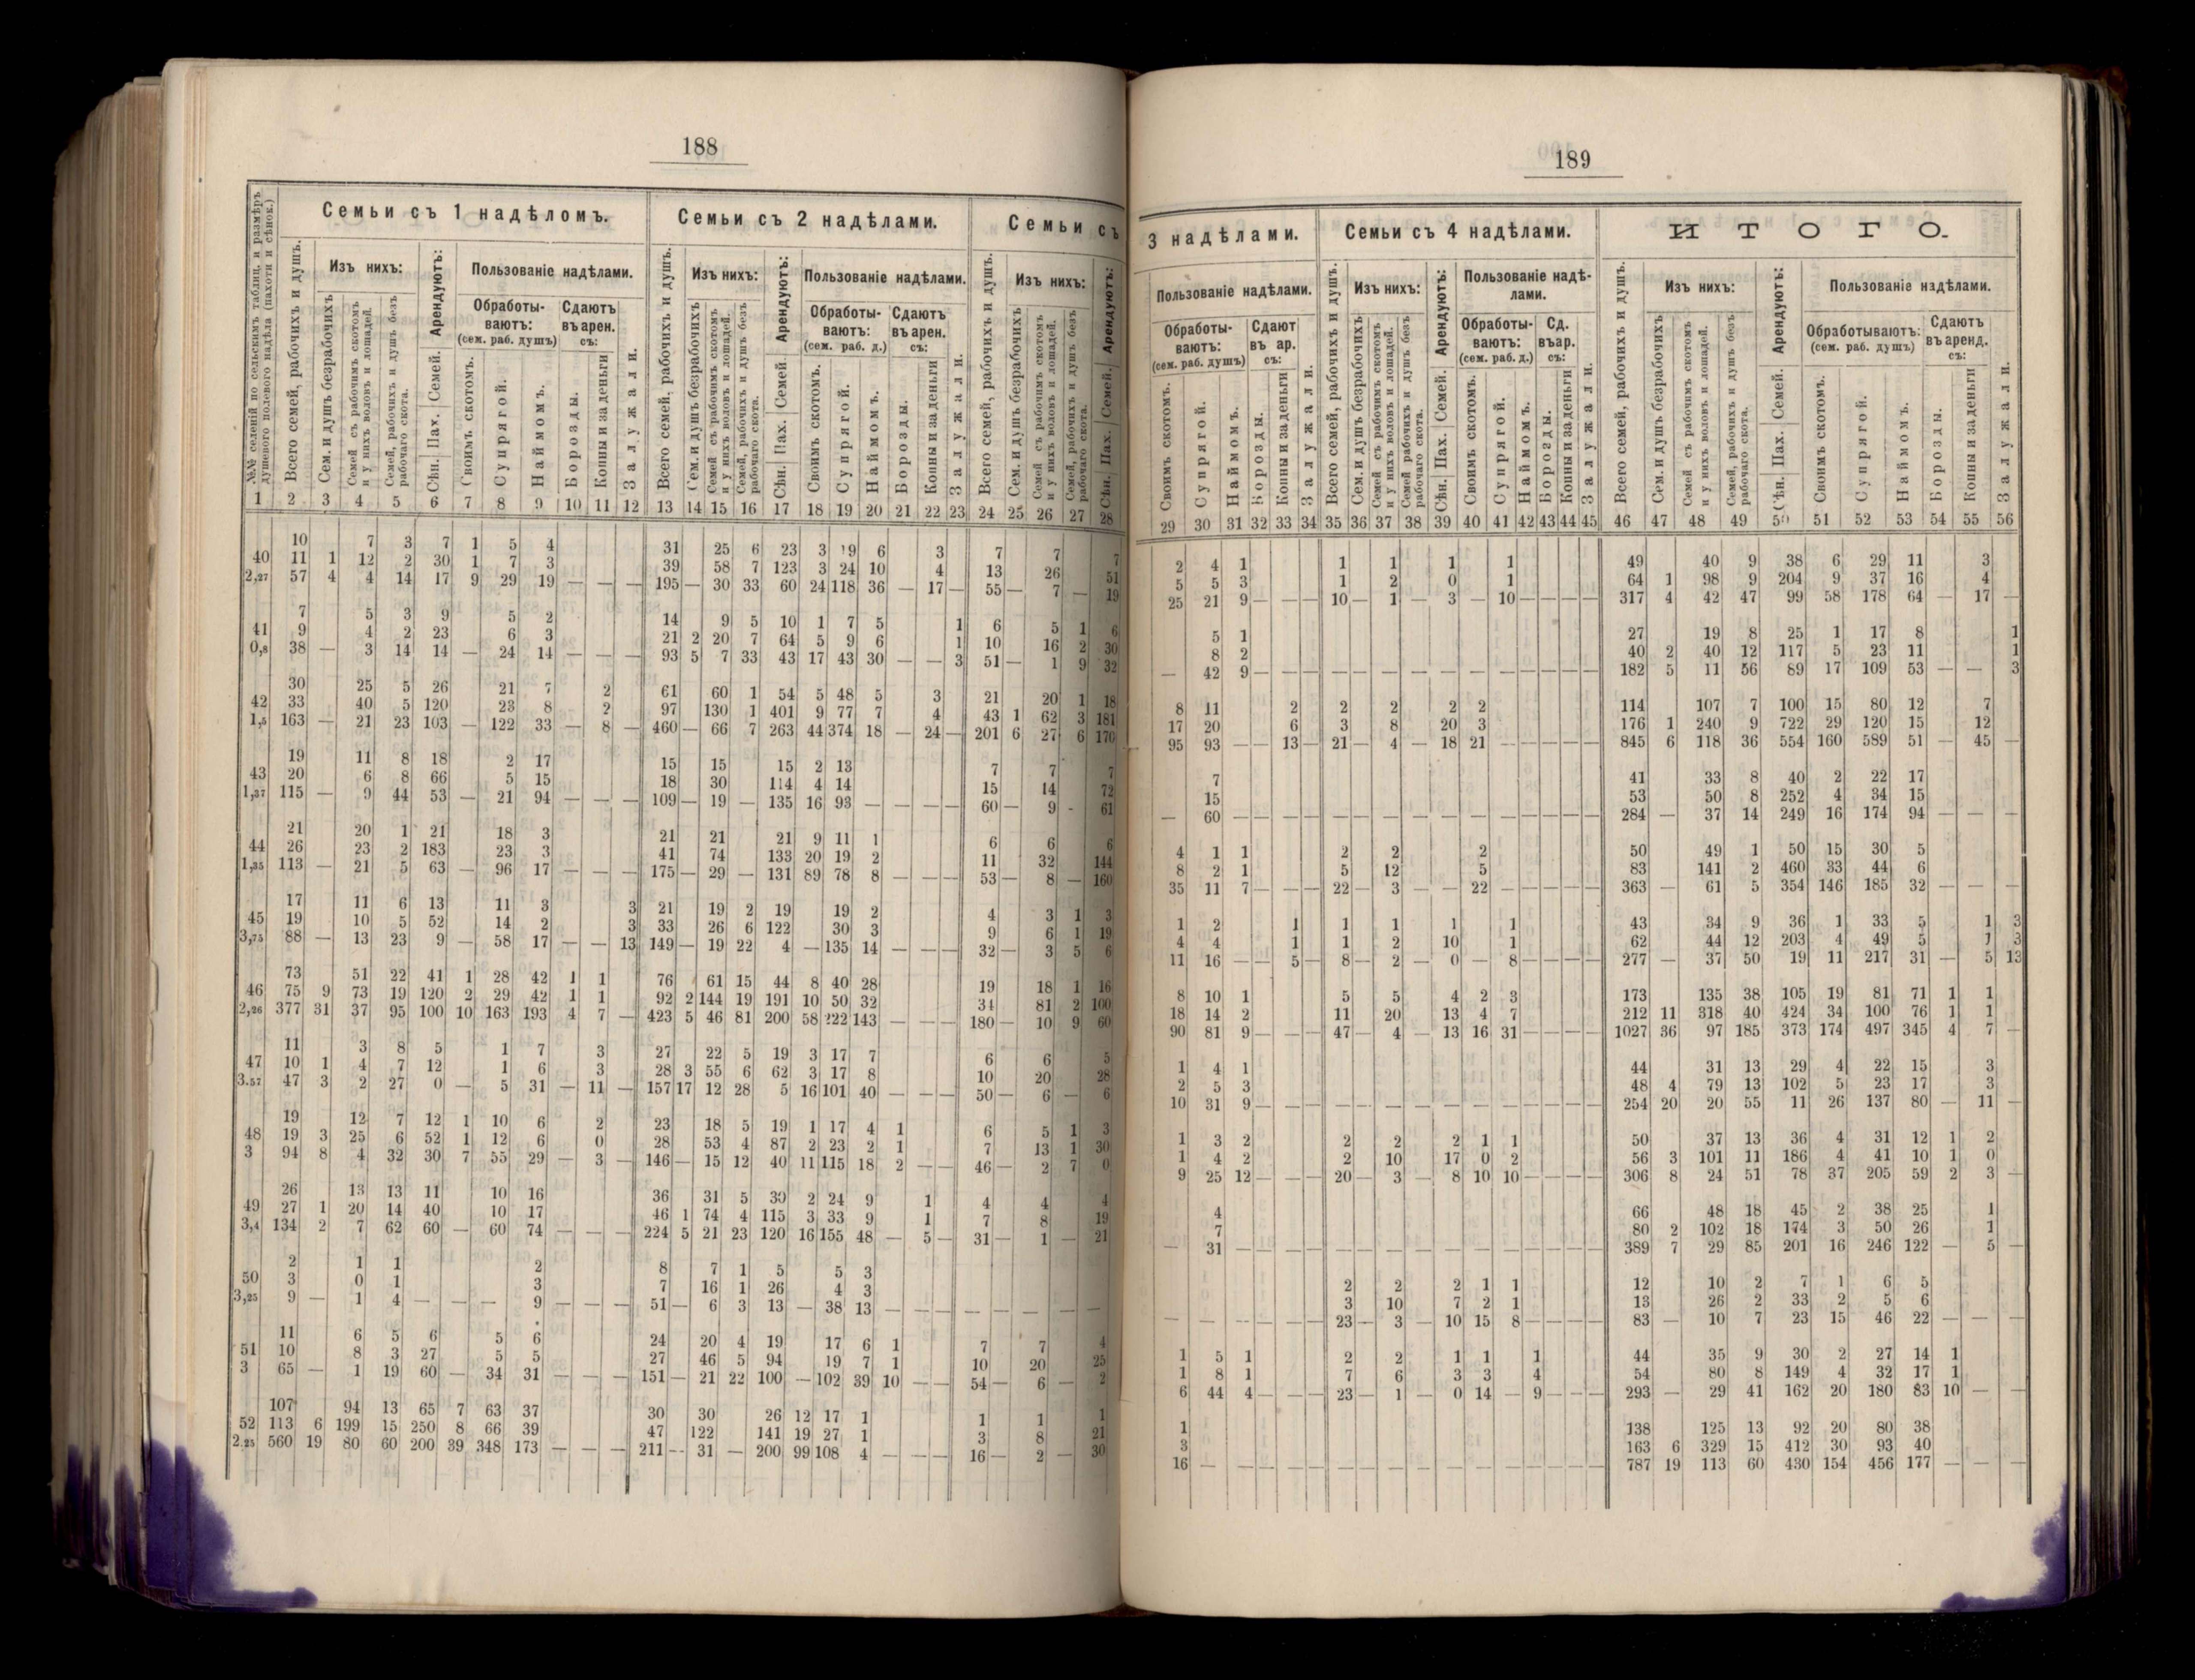 188
Семьи съ 1 надѣломъ. Семьи съ 2 надѣлами. Семьи съ
№№ селеній по сельскимъ таблиц. и размѣръ душевого полевого надѣла (пахоти и сѣнок.)
Всего семей, рабочихъ и душъ.
Изъ нихъ:
Сем. и душъ безрабочихъ
Семей съ рабочимъ скотомъ и у нихъ воловъ и лошадей.
Семей, рабочихъ и душъ безъ рабочаго скота.
Арендуютъ:
Сѣн. Пах. Семей.
Пользованіе надѣлами.
Обработываютъ: (сем. раб. душъ)
Своимъ скотомъ.
Супрягой.
Наймомъ.
Сдаютъ въ арен. съ:
Борозды.
Копны и за деньги
Залужали.
Всего семей, рабочихъ и душъ.
Изъ нихъ:
Сем. и душъ безрабочихъ
Семей съ рабочимъ скотомъ и у нихъ воловъ и лошадей.
Семей, рабочихъ и душъ безъ рабочаго скота.
Арендуютъ:
Сѣн. Пах. Семей.
Пользованіе надѣлами.
Обработываютъ: (сем. раб. д.)
Своимъ скотомъ.
Супрягой.
Наймомъ.
Сдаютъ въ арен. съ:
Борозды.
Копны и за деньги
Залужали.
Всего семей, рабочихъ и душъ.
Изъ нихъ:
Сем. и душъ безрабочихъ
Семей съ рабочимъ скотомъ и у нихъ воловъ и лошадей.
Семей, рабочихъ и душъ безъ рабочаго скота.
Арендуютъ:
Сѣн. Пах. Семей.
1 2 3 4 5 6 7 8 9 10 11 12 13 14 15 16 17 18 19 20 21 22 23 24 25 26 27 28
10 7 3 7 1 5 4 31 25 6 23 3 19 6 3 7 7 7
40 11 1 12 2 30 1 7 3 39 58 7 123 3 24 10 4 13 26 51
2,27 57 4 4 14 17 9 29 19 — — — 195 — 30 33 60 24 118 36 — 17 — 55 — 7 — 19
7 5 3 9 5 2 14 9 5 10 1 7 5 1 6 5 1 6
41 9 4 2 23 6 3 21 2 20 7 64 5 9 6 1 10 16 2 30
0,8 38 — 3 14 14 — 24 14 — — — 93 5 7 33 43 17 43 30 — — 3 51 — 1 9 32
30 25 5 26 21 7 2 61 60 1 54 5 48 5 3 21 20 1 18
42 33 40 5 120 23 8 2 97 130 1 401 9 77 7 4 43 1 62 3 181
1,5 163 — 21 23 103 — 122 33 — 8 — 460 — 66 7 263 44 374 18 — 24 — 201 6 27 6 170
19 11 8 18 2 17 15 15 15 2 13 7 7 7
43 20 6 8 66 5 15 18 30 114 4 14 15 14 72
1,37 115 — 9 44 53 — 21 94 — — — 109 — 19 — 135 16 93 — — — — 60 — 9 - 61
21 20 1 21 18 3 21 21 21 9 11 1 6 6 6
44 26 23 2 183 23 3 41 74 133 20 19 2 11 32 144
1,35 113 — 21 5 63 — 96 17 — — — 175 — 29 — 131 89 78 8 — — — 53 — 8 — 160
17 11 6 13 11 3 3 21 19 2 19 19 2 4 3 1 3
45 19 10 5 52 14 2 3 33 26 6 122 30 3 9 6 1 19
3,75 88 — 13 23 9 — 58 17 — — 13 149 — 19 22 4 — 135 14 — — — 32 — 3 5 6
73 51 22 41 1 28 42 1 1 76 61 15 44 8 40 28 19 18 1 16
46 75 9 73 19 120 2 29 42 1 1 92 2 144 19 191 10 50 32 34 81 2 100
2,26 377 31 37 95 100 10 163 193 4 7 — 423 5 46 81 200 58 222 143 — — — 180 — 10 9 60
11 3 8 5 1 7 3 27 22 5 19 3 17 7 6 6 5
47 10 1 4 7 12 1 6 3 28 3 55 6 62 3 17 8 10 20 28
3.57 47 3 2 27 0 — 5 31 — 11 — 157 17 12 28 5 16 101 40 — — — 50 — 6 — 6
19 12 7 12 1 10 6 2 23 18 5 19 1 17 4 1 6 5 1 3
48 19 3 25 6 52 1 12 6 0 28 53 4 87 2 23 2 1 7 13 1 30
3 94 8 4 32 30 7 55 29 — 3 — 146 — 15 12 40 11 115 18 2 — — 46 — 2 7 0
26 13 13 11 10 16 36 31 5 30 2 24 9 1 4 4 4
49 27 1 20 14 40 10 17 46 1 74 4 115 3 33 9 1 7 8 19
3,4 134 2 7 62 60 — 60 74 — — — 224 5 21 23 120 16 155 48 — 5 — 31 — 1 — 21
2 1 1 2 8 7 1 5 5 3
50 3 0 1 3 7 16 1 26 4 3
3,25 9 — 1 4 — — — 9 — — — 51 — 6 3 13 — 38 13 — — — — — — — —
11 6 5 6 5 6 24 20 4 19 17 6 1 7 7 4
51 10 8 3 27 5 5 27 46 5 94 19 7 1 10 20 25
3 65 — 1 19 60 — 34 31 — — — 151 — 21 22 100 — 102 39 10 — — 54 — 6 — 2
107 94 13 65 7 63 37 30 30 26 12 17 1 1 1 1
52 113 6 199 15 250 8 66 39 47 122 141 19 27 1 3 8 21
2.25 560 19 80 60 200 39 348 173 — — — 211 — 31 — 200 99 108 4 — — — 16 — 2 — 30
189
3 надѣлами. Семьи съ 4 надѣлами. ИТОГО.
Пользованіе надѣлами.
Обработываютъ: (сем. раб. душъ)
Своимъ скотомъ.
Супрягой.
Наймомъ.
Сдают въ ар. съ:
Борозды.
Копны и за деньги
Залужали.
Всего семей, рабочихъ и душъ.
Изъ нихъ:
Сем. и душъ безрабочихъ
Семей съ рабочимъ скотомъ и у нихъ воловъ и лошадей.
Семей рабочихъ и душъ безъ рабочаго скота.
Арендуютъ:
Сѣн. Пах. Семей.
Пользованіе надѣлами.
Обработываютъ: (сем. раб. д.)
Своимъ скотомъ.
Супрягой.
Наймомъ.
Сд. въ ар. съ:
Борозды.
Копны и за деньги
Залужали.
Всего семей, рабочихъ и душъ.
Изъ нихъ:
Сем. и душъ безрабочихъ
Семей съ рабочимъ скотомъ и у нихъ воловъ и лошадей.
Семей, рабочихъ и душъ безъ рабочаго скота.
Арендуютъ:
Сѣн. Пах. Семей.
Пользованіе надѣлами.
Обработываютъ: (сем. раб. душъ)
Своимъ скотомъ.
Супрягой.
Наймомъ.
Сдаютъ въ аренд. съ:
Борозды.
Копны и за деньги
Залужали.
29 30 31 32 33 34 35 36 37 38 39 40 41 42 43 44 45 46 47 48 49 50 51 52 53 54 55 56
2 4 1 1 1 1 1 49 40 9 38 6 29 11 3
5 5 3 1 2 0 1 64 1 98 9 204 9 37 16 4
25 21 9 — — — 10 — 1 — 3 — 10 — — — — 317 4 42 47 99 58 178 64 — 17 —
27 19 8 25 1 17 8 1
5 1 40 2 40 12 117 5 23 11 1
8 2
— 42 9 — — — — — — — — — — — — — — 182 5 11 56 89 17 109 53 — — 3
8 11 2 2 2 2 2 114 107 7 100 15 80 12 7
17 20 6 3 8 20 3 176 1 240 9 722 29 120 15 12
95 93 — — 13 — 21 — 4 — 18 21 — — — — — 845 6 118 36 554 160 589 51 — 45 —
7 41 33 8 40 2 22 17
15 53 50 8 252 4 34 15
— 60 — — — — — — — — — — — — — — — 284 — 37 14 249 16 174 94 — — —
4 1 1 2 2 2 50 49 1 50 15 30 5
8 2 1 5 12 5 83 141 2 460 33 44 6
35 11 7 — — — 22 — 3 — — 22 — — — — — 363 — 61 5 354 146 185 32 — — —
1 2 1 1 1 1 1 43 34 9 36 1 33 5 1 3
4 4 1 1 2 10 1 62 44 12 203 4 49 5 1 3
11 16 — — 5 — 8 — 2 — 0 — 8 — — — — 277 — 37 50 19 11 217 31 — 5 13
8 10 1 5 5 4 2 3 173 135 38 105 19 81 71 1 1
18 14 2 11 20 13 4 7 212 11 318 40 424 34 100 76 1 1
90 81 9 — — — 47 — 4 — 13 16 31 — — — — 1027 36 97 185 373 174 497 345 4 7 —
1 4 1 44 31 13 29 4 22 15 3
2 5 3 48 4 79 13 102 5 23 17 3
10 31 9 — — — — — — — — — — — — — — 254 20 20 55 11 26 137 80 — 11 —
1 3 2 2 2 2 1 1 50 37 13 36 4 31 12 1 2
1 4 2 2 10 17 0 2 56 3 101 11 186 4 41 10 1 0
9 25 12 — — — 20 — 3 — 8 10 10 — — — — 306 8 24 51 78 37 205 59 2 3 —
4 66 48 18 45 2 38 25 1
7 80 2 102 18 174 3 50 26 1
— 31 — — — — — — — — — — — — — — — 389 7 29 85 201 16 246 122 — 5 —
2 2 2 1 1 12 10 2 7 1 6 5
3 10 7 2 1 13 26 2 33 2 5 6
— — — — — — 23 — 3 — 10 15 8 — — — — 83 — 10 7 23 15 46 22 — — —
1 5 1 2 2 1 1 1 44 35 9 30 2 27 14 1
1 8 1 7 6 3 3 4 54 80 8 149 4 32 17 1
6 44 4 — — — 23 — 1 — 0 14 — 9 — — — 293 — 29 41 162 20 180 83 10 — —
1 138 125 13 92 20 80 38
3 163 6 329 15 412 30 93 40
16 — — — — — — — — — — — — — — — — 787 19 113 60 430 154 456 177 — — —